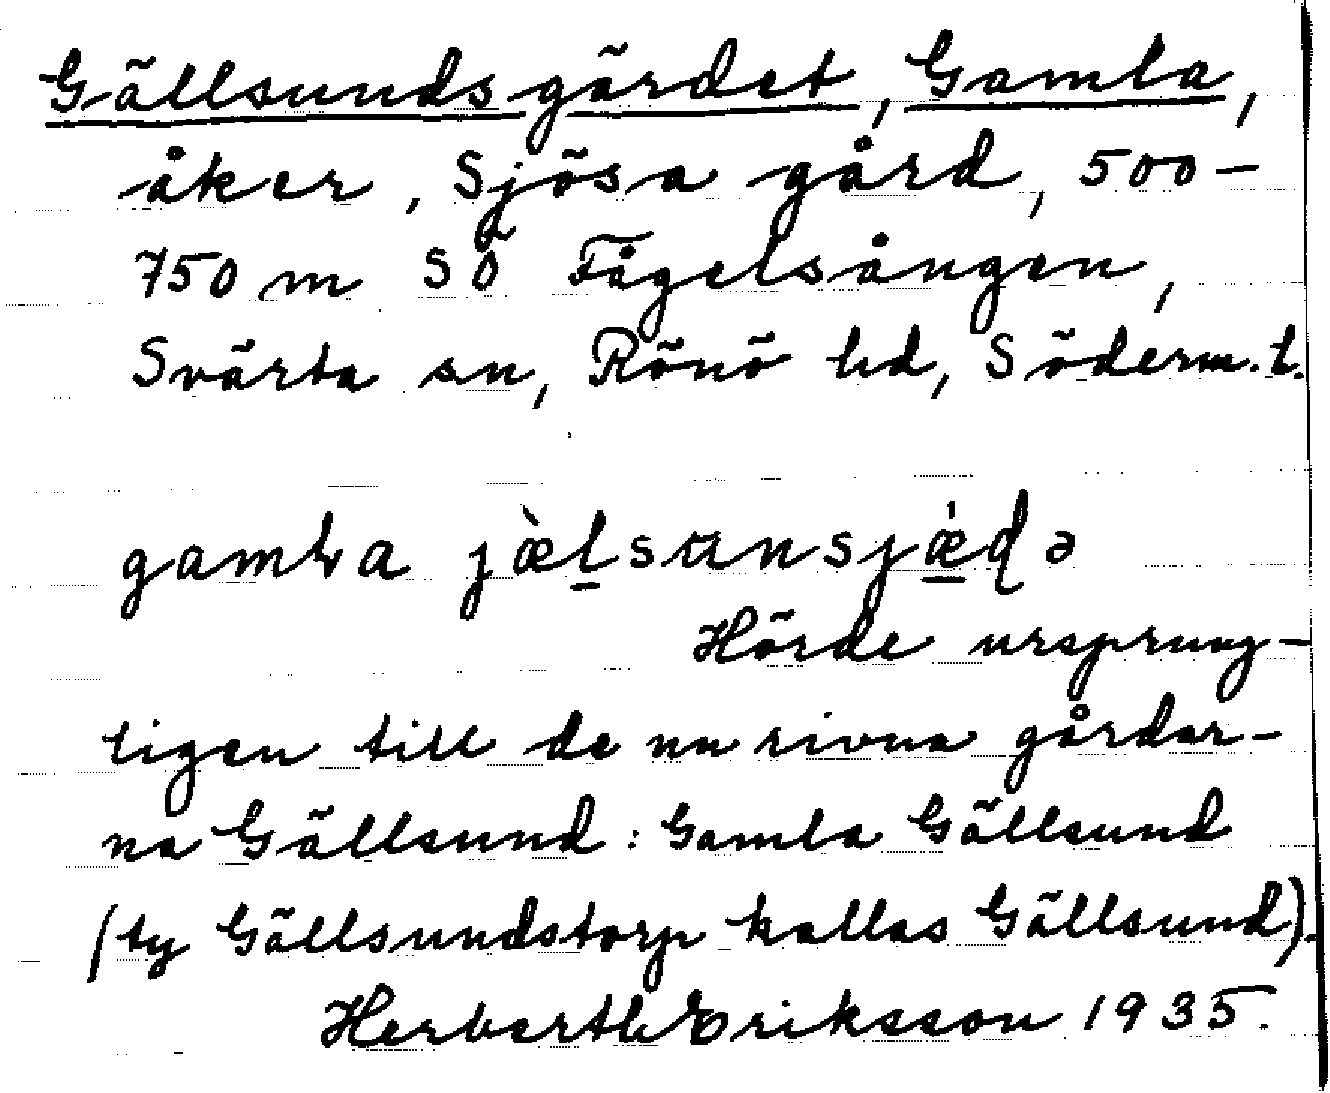 Gällsundsgärdet, Gamla,
åker, Sjösa gård, 500-
750 m SÖ Fågelsången,
Svärta sn, Rönö hd, Söderm. l.
gamla jæ̀lsunsjǽɖə
Hörde ursprung-
ligen till de nu rivna gårdar-
na Gällsund: Gamla Gällsund
(ty Gällsundstorp kallas Gällsund).
Herbert Eriksson 1935.